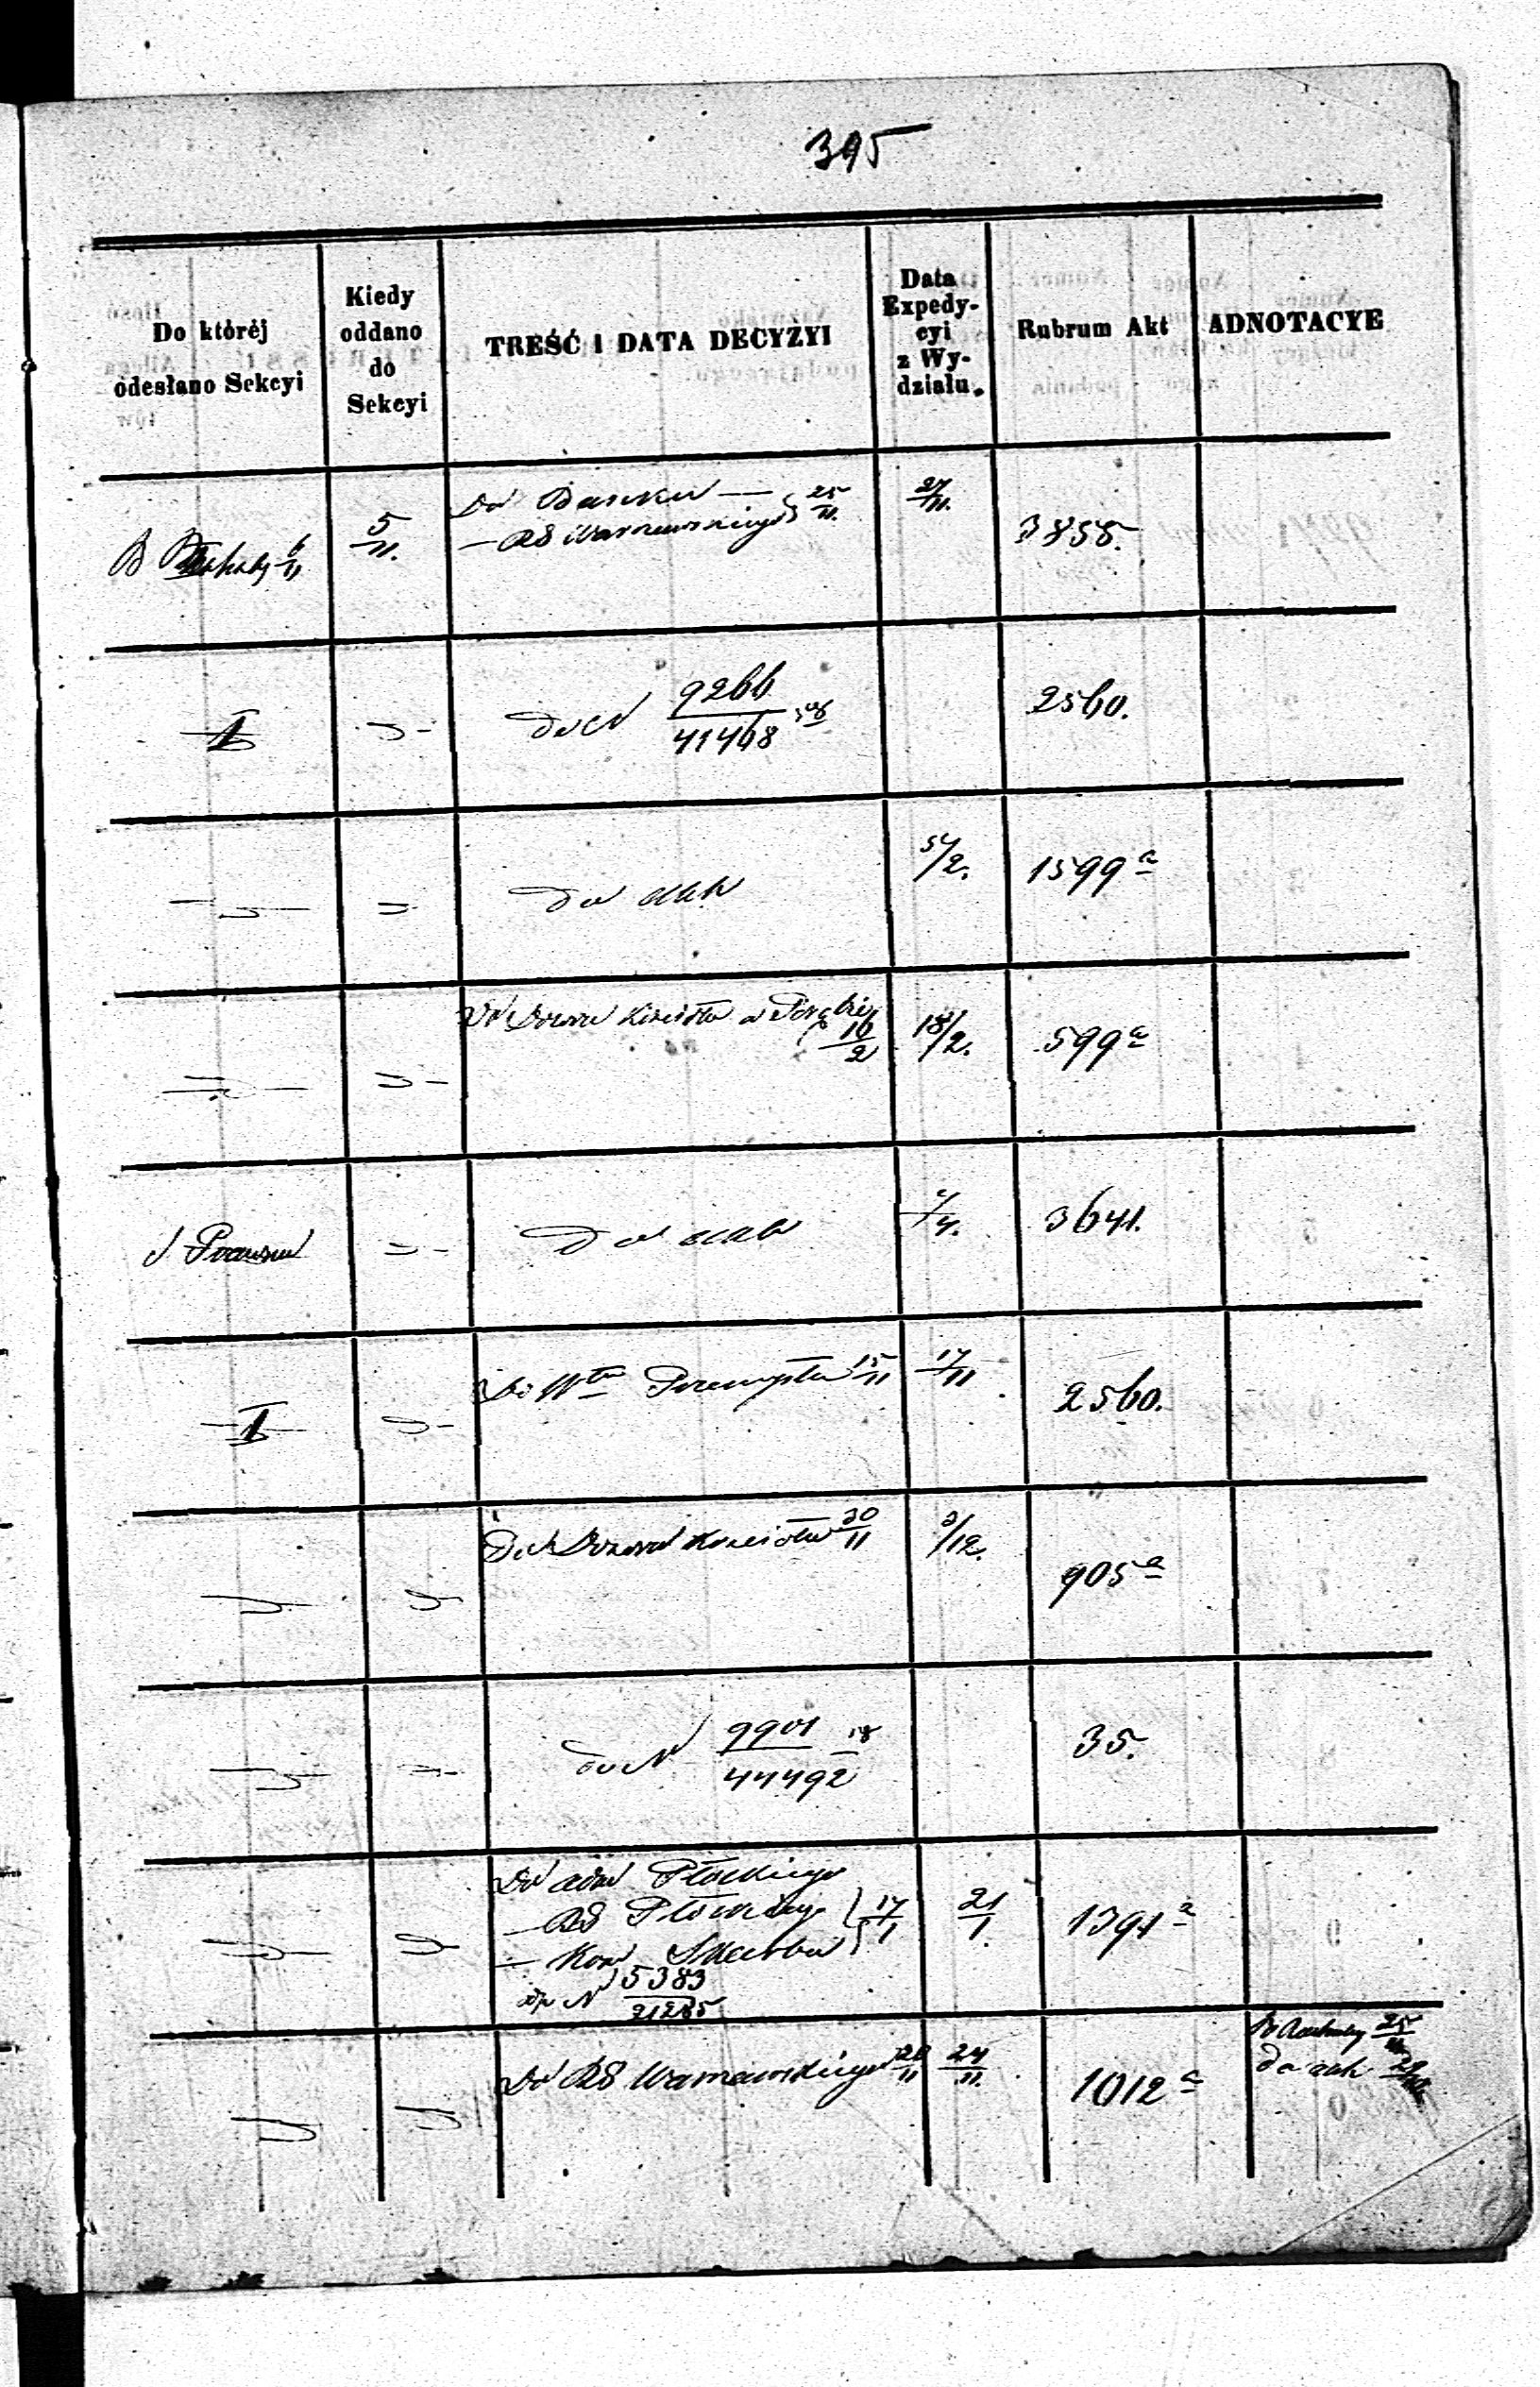 395
Do któréj
odesłano Sekcyi
Kiedy
oddano
do
Sekcyi
TREŚĆ I DATA DECYZYI
Data
Expedy-
cyi
z Wy-
działu.
Rubrum Akt
ADNOTACYE
B 6/11
5/11.
Do Banku — 25/11.
— RG Warszawskiego
27/11.
3858.
I
do N 9266/41468
2560.
do akt
5/2.
1599 a
Do Dozoru Kościoła w 16/2
18/2.
599 a
do akt
3641.
I
Do Włu Przemysłu 15/11
17/11
2560.
Do Dozoru Kościoła 30/11
3/12.
905 a
do N 9901/44492 58
35.
Do adm Płockiego
— RG Płockiego 17/1
— Kom Skarbu
N 5383/21285
21/1.
1391 a
Do RG Warszawskiego 20/11
24/11.
1012 a
25
do akt